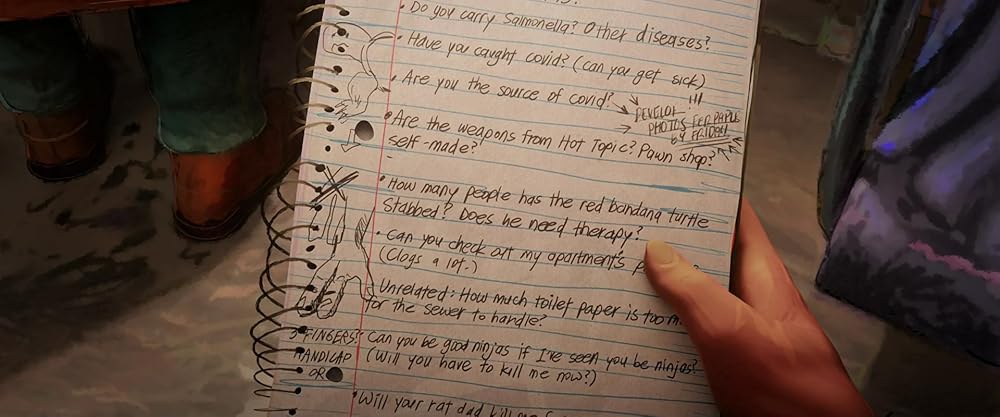 • Do you carry Salmonella? Other diseases?
• Have you caught covid? (can you get sick)
• Are you the source of covid?
DEVELOP
PHOTOS FOR PAPER
BY FRIDAY
• Are the weapons from Hot Topic? Pawn shop?
self-made?
• How many people has the red bandana turtle
stabbed? Does he need therapy?
• can you check out my apartment's
(Clogs a lot.)
Unrelated: How much toilet paper is too
for the sewer to handle?
FINGERS?
HANDICAP
OR
Can you be good ninjas if I've seen you be ninjas?
(Will you have to kill me now?)
• Will your rat dad kill me